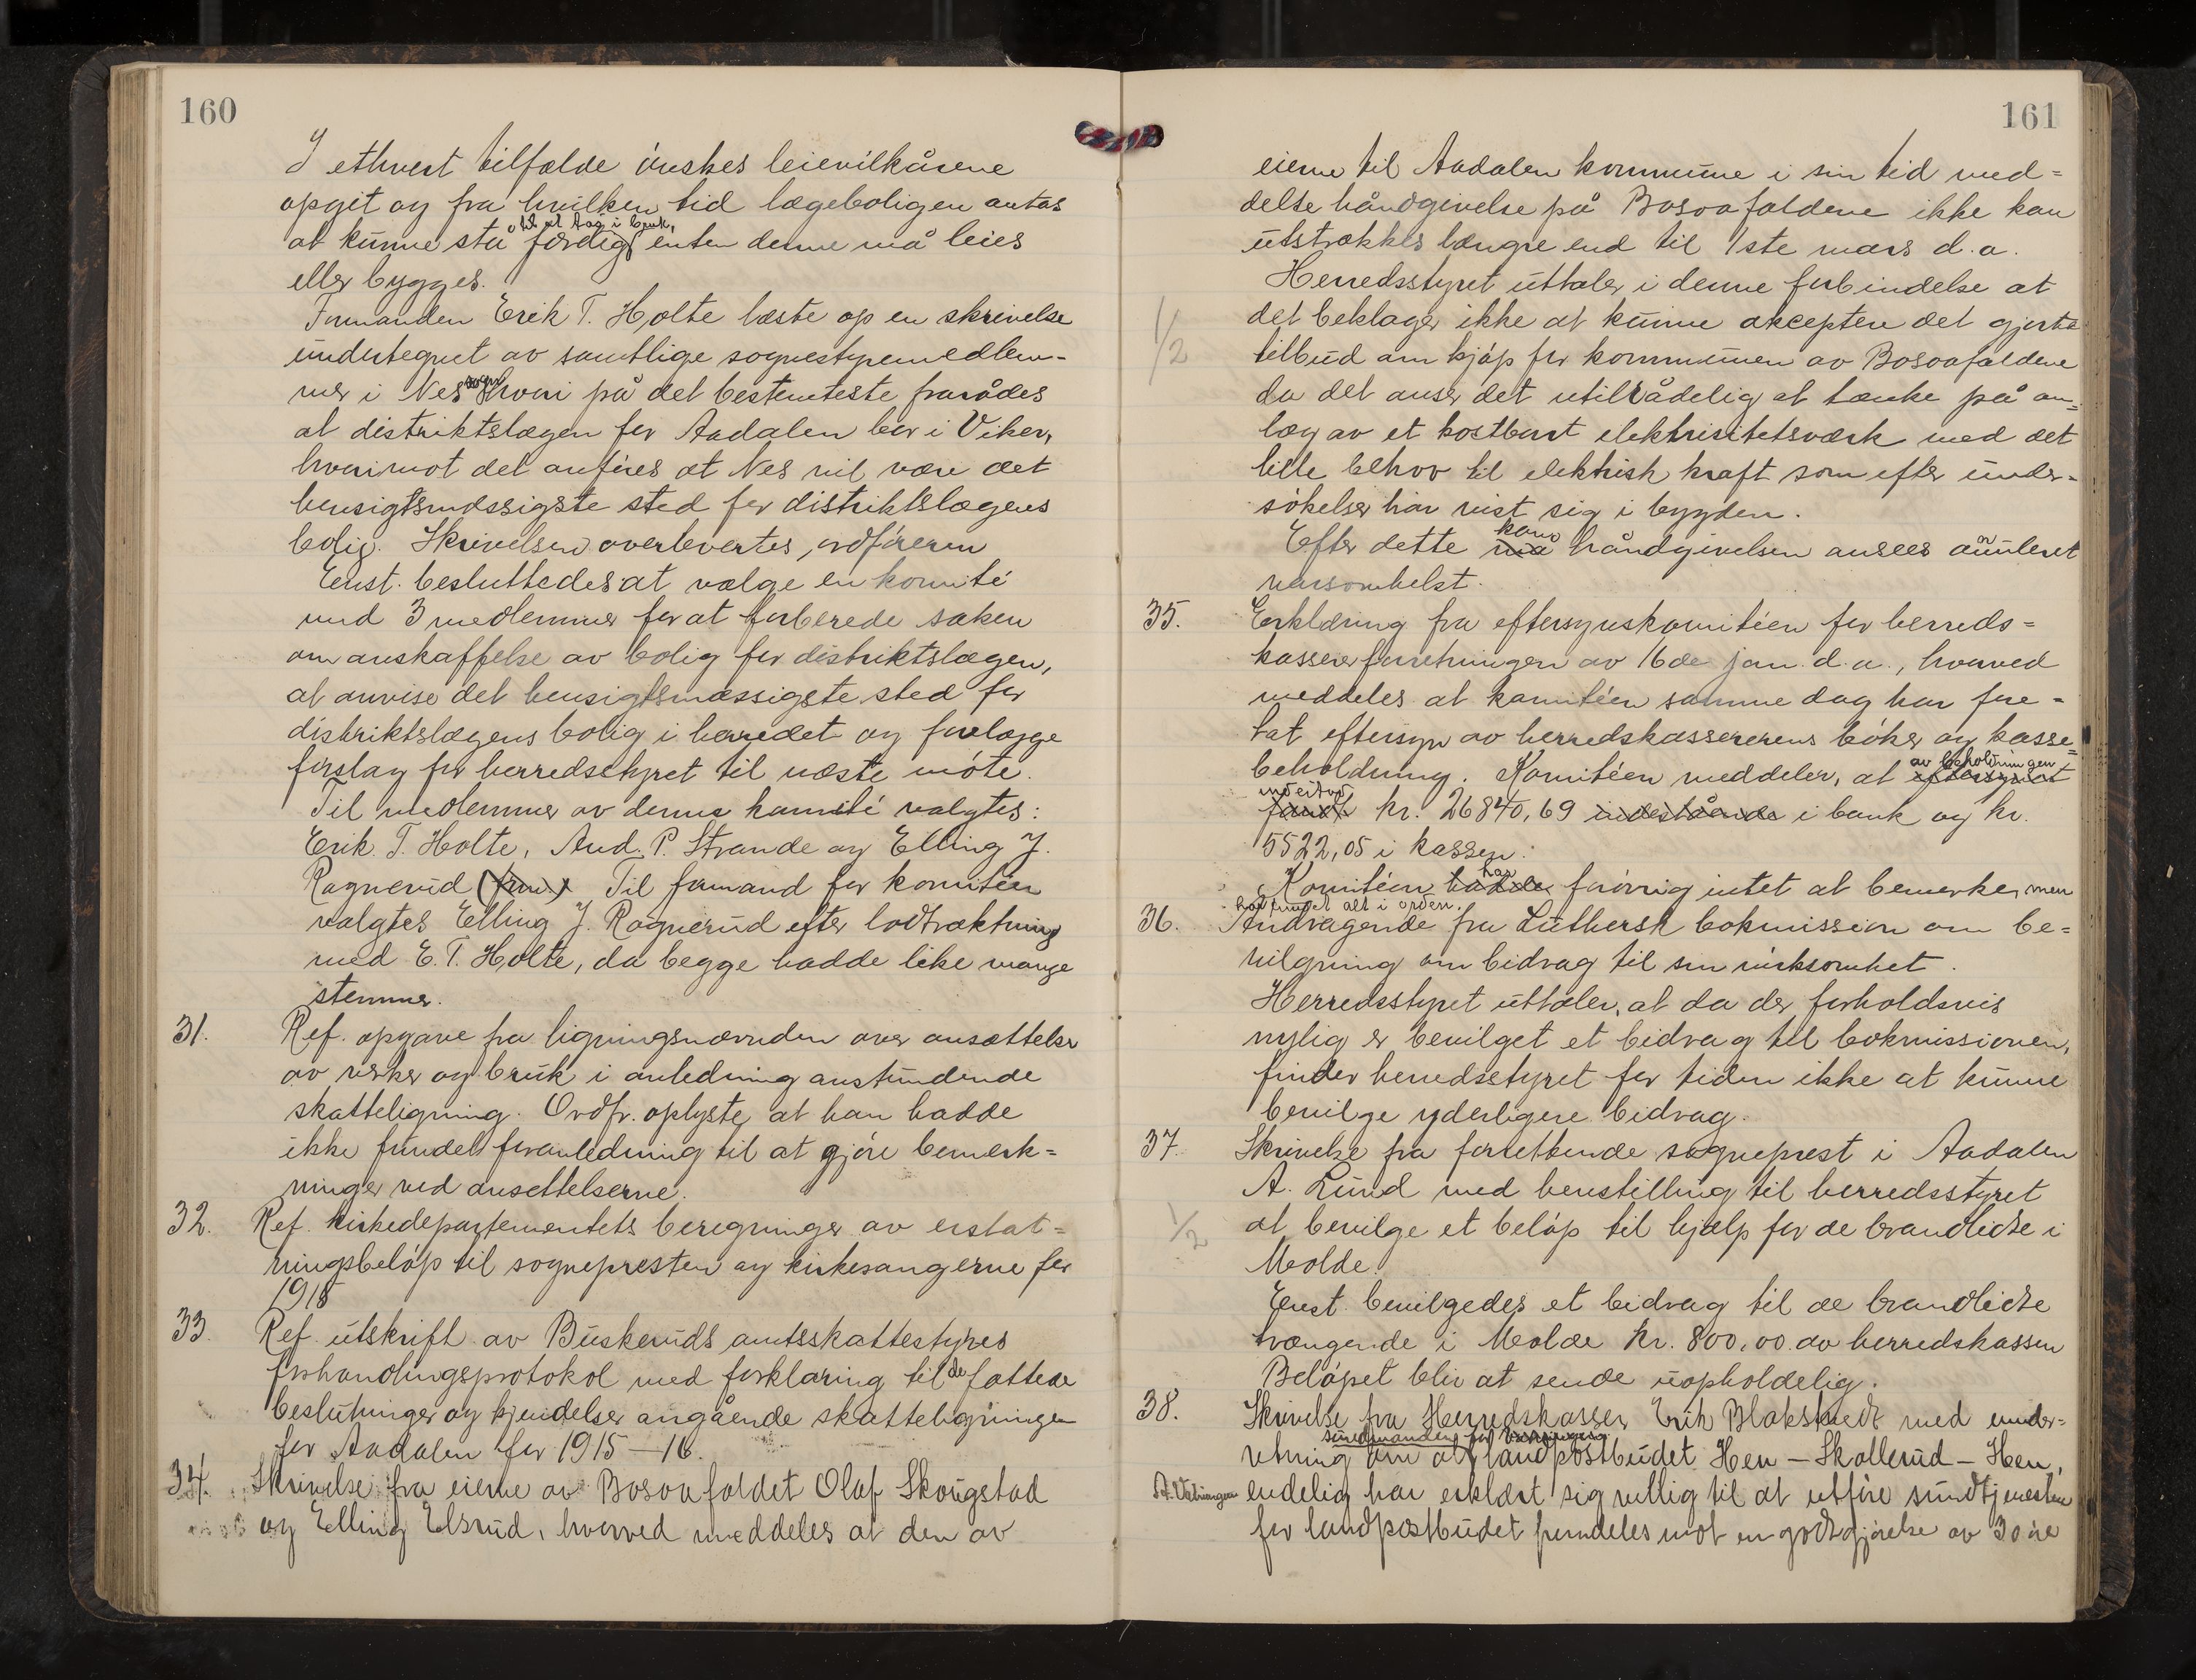 160
I ethvert tilfælde ønskes leievilkårene
opgit og fra hvilken tid lægeboligen antas
til at tag i bruk,
at kunne stå færdig enten denne må leies
eller bygges.
Formanden Erik T. Holte læste op en skrivelse
undertegnet av samtlige sognestyremedlem-
mer i Nes sogn hvori på det bestemteste frarådes
at distriktslægen for Aadalen bor i Viker,
hvorimot det anføres at Nes vil være det
hensigtsmæssigste sted for distriktslægens
bolig. Skrivelsen overlevertes ordføreren
Enst. besluttedes at vælge en komité
med 3 medlemmer for at forberede saken
om anskaffelse av bolig for distriktslægen,
at anvise det hensigtsmæssigste sted for
distriktslægens bolig i herredet og forelægge
forslag for herredsstyret til næste møte.
Til medlemmer av denne komité valgtes:
Erik T. Holte, And. P. Strande og Elling J.
Ragnerud (form.) Til formand for komitéen
valgtes Elling J. Ragnerud efter lodtrækning
med E. T. Holte, da begge hadde like mange
stemmer.
31. Ref. opgave fra ligningsnævnden over ansættelse
av verker og bruk i anledning anstundende
skatteligning. Ordfr. oplyste at han hadde
ikke fundet foranledning til at gjøre bemerk=
ninger ved ansettelserne.
32. Ref. kirkedepartementets beregninger av erstat=
ningsbeløp til sognepresten og kirkesangerne for
1915
33. Ref. utskrift av Buskeruds amtsskattestyres
forhandlingsprotokol med forklaring til de fattede
beslutninger og kjendelser angående skatteligningen
for Aadalen for 1915–16.
34. Skrivelse fra eierne av Bosoafaldet Olaf Skougstad
og Elling Elsrud, hvorved meddeles at den av
161
eierne til Aadalen kommune i sin tid med=
delte håndgivelse på Bosoafaldene ikke kan
utstrækkes længre end til 1ste mars d.a.
Herredsstyret uttaler i denne forbindelse at
1/2
det beklager ikke at kunne akceptere det gjorte
tilbud om kjøp for kommunen av Bosoafaldene
da det anser det utilrådelig at tænke på an=
læg av et kostbart elektrisitetsværk med det
lille behov til elektrisk kraft som efter under=
søkelser har vist sig i bygden.
kan
Efter dette må håndgivelsen ansees annuleret
narsomhelst.
35. Erklæring fra eftersynskomitéen for herreds=
kassererforretningen av 16de jan. d.a., hvorved
meddeles at komitéen samme dag har fore=
tat eftersyn av herredskassererens bøker og kasse=
av beholdningen
beholdning. Komitéen meddeler, at eftersynet
indestod
fandt kr. 26840,69 indestående i bank og kr.
5522,05 i kassen.
har
Komitéen hadde forøvrig intet at bemerke, men
har fundet alt i orden.
36. Andragende fra Luthersk bokmission om be=
vilgning om bidrag til sin virksomhet.
Herredsstyret uttaler, at da der forholdsvis
nylig er bevilget et bidrag til bokmissionen,
finder herredsstyret for tiden ikke at kunne
bevilge yderligere bidrag.
37. Skrivelse fra forrettende sogneprest i Aadalen
A. Lund med henstilling til herredsstyret
1/2
at bevilge et beløp til hjælp for de brandlidte i
Molde.
Enst. bevilgedes et bidrag til de brandlidte
trængende i Molde kr. 800,00 av herredskassen
Beløpet blir at sende uopholdelig.
38. Skrivelse fra Herredskasser Erik Blakstvedt med under=
sundmanden for
retning om at landpostbudet Hen – Skollerud – Hen,
endelig har erklært sig villig til at utføre sundtjenesten
for landpostbudet fremdeles mot en godtgjørelse av 30 øre